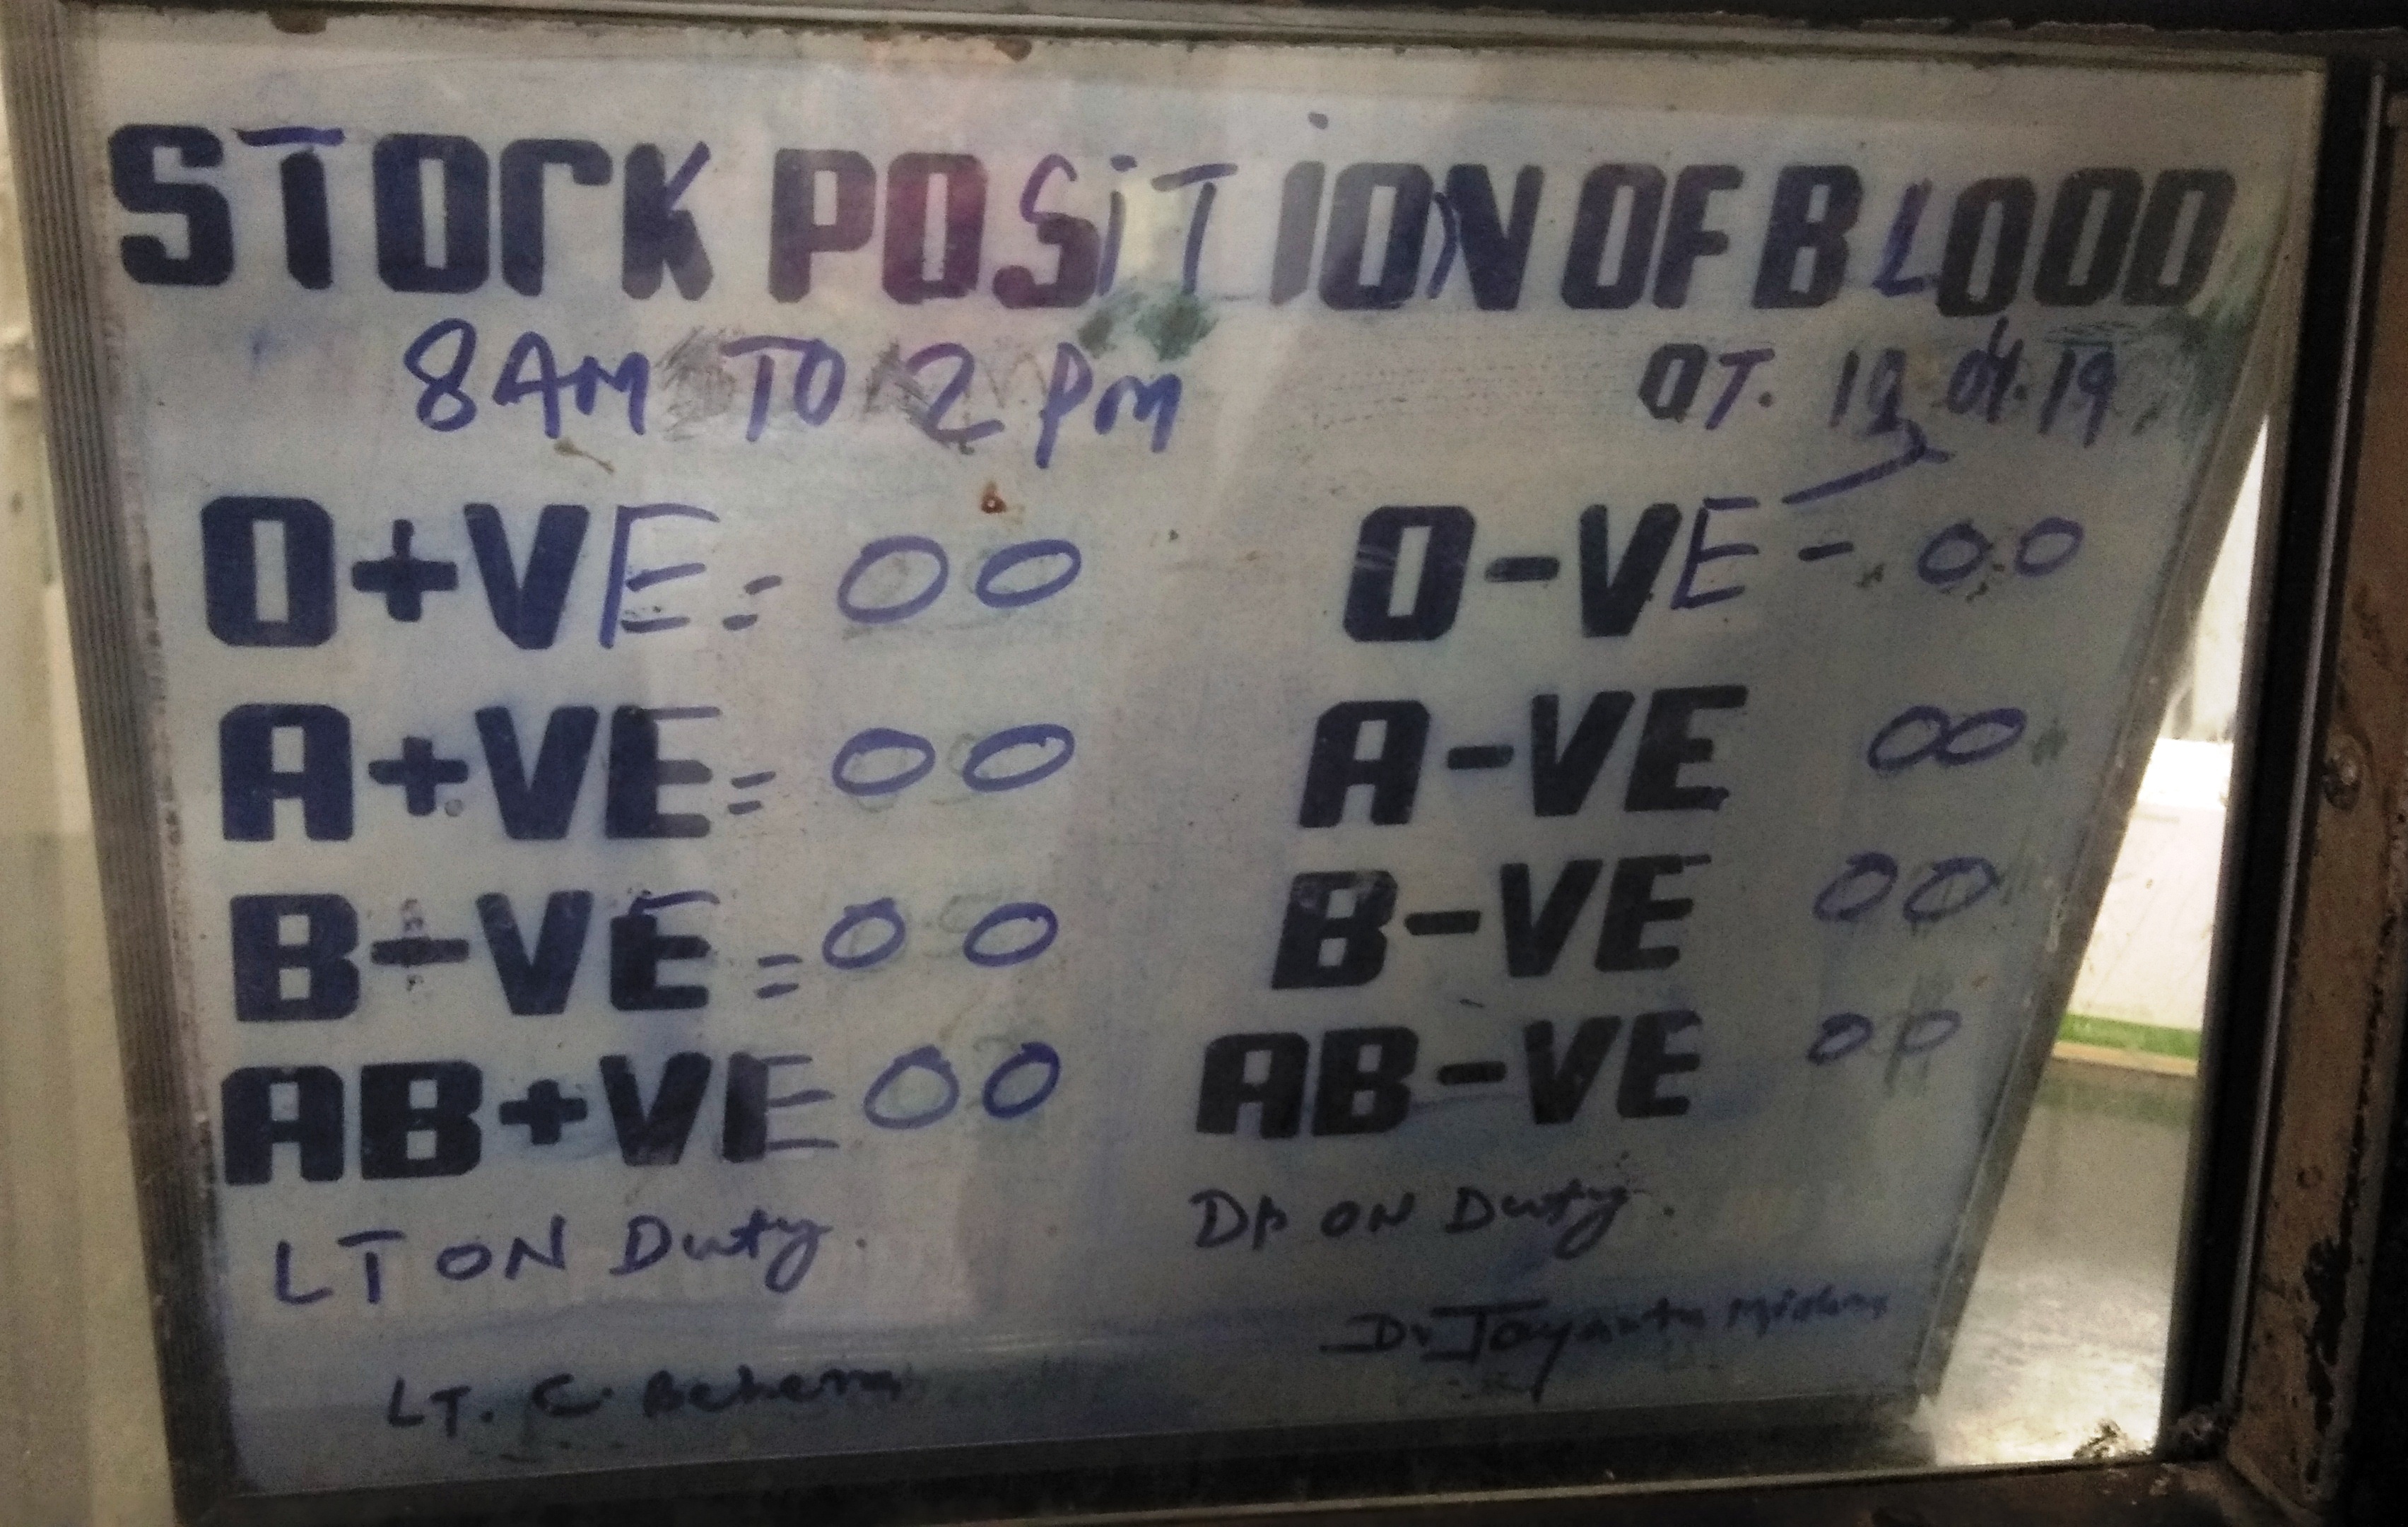 STOCK POSITION OF BLOOD
8AM TO 2 PM
DT. 04.19
O+VE = 00
O-VE - 00
A+VE = 00
A-VE 00
B+VE = 00
B-VE 00
AB+VE 00
AB-VE 00
LT ON Duty.
DR ON Duty.
LT. C. Behera
Dr Jayanta